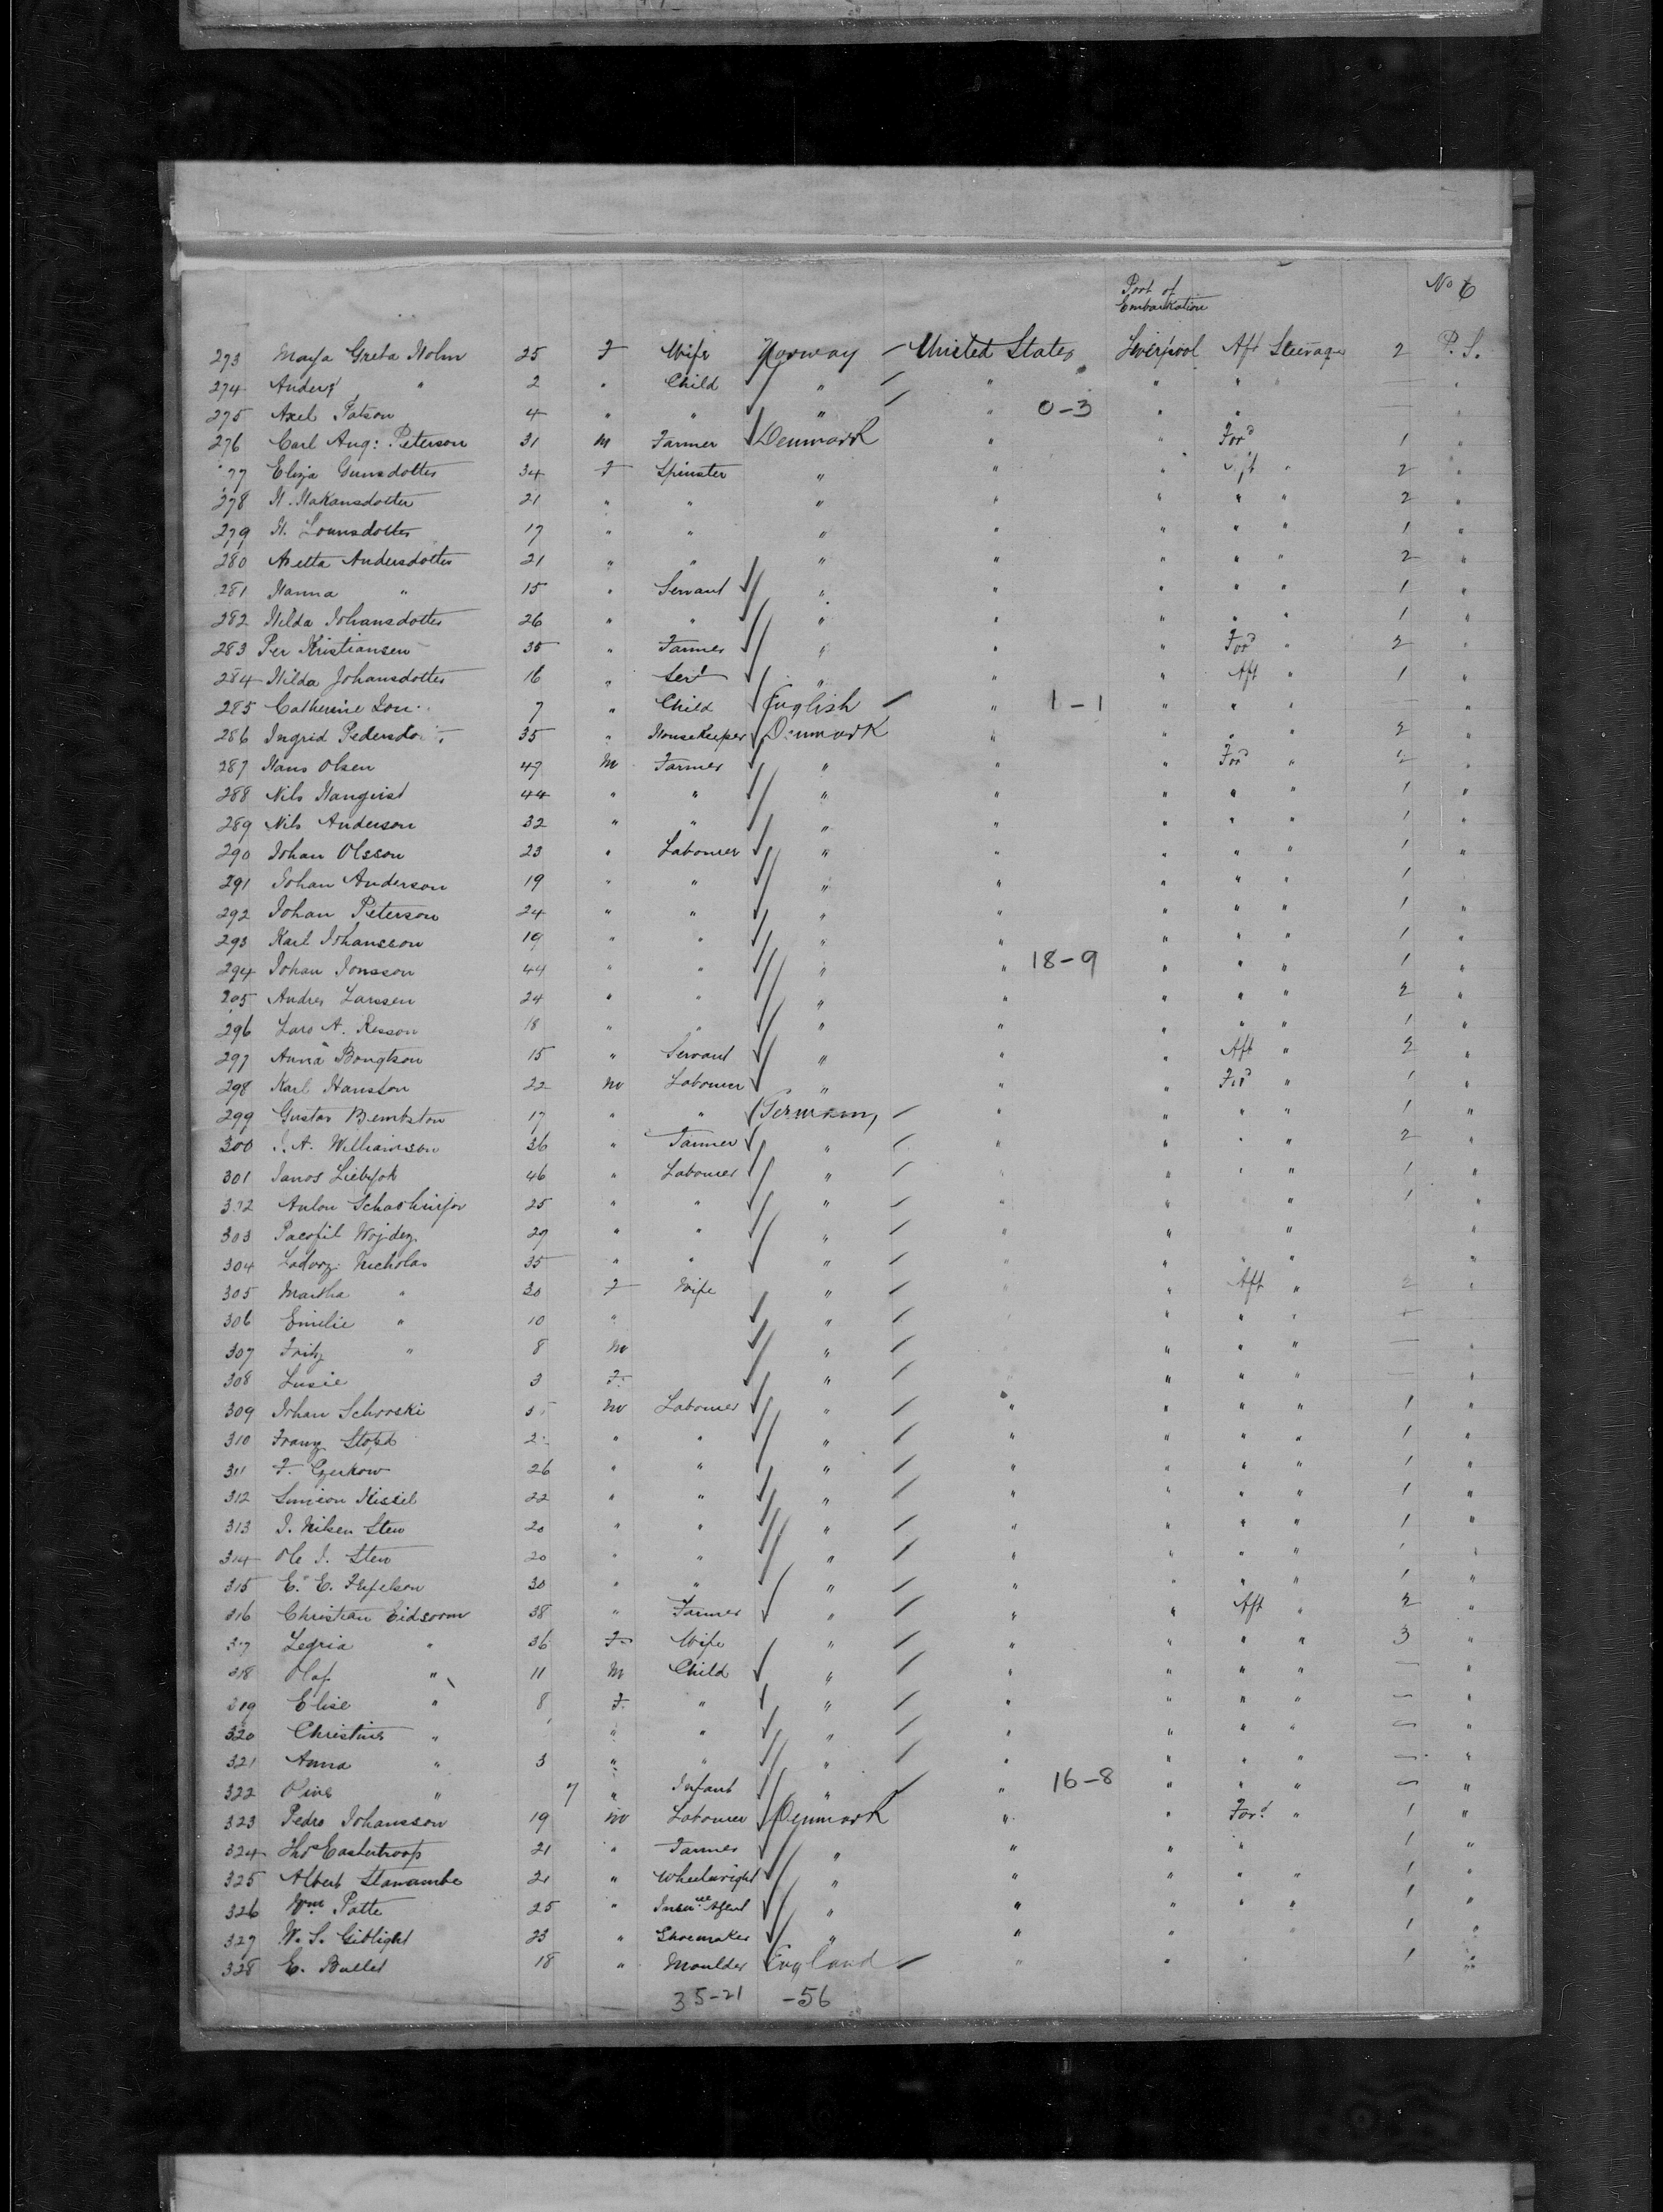 Port of
Embarkation
No 6
273 Maja Greta Holm 25 F Wife Norway United States Liverpool Aft Steerage 2 P.S.
274 Anders " 2 " Child " " " " " — "
275 Axel 4 " " " " 0-3 " " — "
276 Carl Aug: Peterson 31 M Farmer Denmark " " For'd 1 "
277 Eliza Gunsdotter 34 F Spinster " " " Aft " 2 "
278 H. Hakansdotter 21 " " " " " " " 2 "
279 H. 17 " " " " " " " 1 "
280 Andersdotter 21 " " " " " " " 2 "
281 Hanna " 15 " Servant " " " " " 1 "
282 Hilda Johansdotter 26 " " " " " " " 1 "
283 Per Kristiansen 35 " Farmer " " " For'd " 2 "
284 Hilda Johansdotter 16 " Serv't " " " Aft " 1 "
285 Catherine 7 " Child English " 1-1 " " " — "
286 Ingrid 35 " Housekeeper Denmark " " " " 2 "
287 Hans Olsen 47 M Farmer " " " For'd " 2 "
288 Nils Hanqvist 44 " " " " " " " 1 "
289 Nils Anderson 32 " " " " " " " 1 "
290 Johan Olsson 23 " Labourer " " " " " 1 "
291 Johan Anderson 19 " " " " " " " 1
292 Johan Peterson 24 " " " " " " " 1 "
293 Karl Johansson 19 " " " " " " " 1 "
294 Johan Jonsson 44 " " " " 18-9 " " " 1 "
295 Andres Larssen 24 " " " " " " " 2 "
296 Lars A. 18 " " " " " " " 1 "
297 Anna Bengtson 15 " Servant " " " Aft " 2 "
298 Karl Hansson 22 M Labourer " " " For'd " 1 "
299 Gustav 17 " " Germany " " " " 1 "
300 J. A. Williamson 36 " Farmer " " " " " 2 "
301 Janos 46 " Labourer " " " " 1 "
302 Anton 25 " " " " " " 1 "
303 29 " " " " " "
304 Nicholas 35 " " " " " " " "
305 Martha " 30 F Wife " " " Aft " 2 "
306 Emilie " 10 " " " " "
307 Fritz " 8 M " " " " — "
308 Lusie 3 F " " " " — "
309 Johan Schroski M Labourer " " " " " 1 "
310 Franz " " " " " " " 1 "
311 F. 26 " " " " " " " 1 "
312 Simion Kissil 22 " " " " " " " 1 "
313 J. Nilsen Sten 20 " " " " " " " 1 "
314 Ole J. Sten 20 " " " " " " " 1 "
315 E. E. 30 " " " " " " " 1 "
316 Christian Eidsoorn 38 " Farmer " " " Aft " 2 "
317 " 36 F Wife " " " " " 3 "
318 Olaf " 11 M Child " " " " " — "
319 Elise " 8 F " " " " " " — "
320 Christine " " " " " " " " — "
321 Anna " 3 " " " " " " " — "
322 " 7 " Infant " " 16-8 " " " — "
323 Pedro Johansson 19 M Labourer Denmark " " For'd " 1 "
324 Thos 21 " Farmer " " " " 1 "
325 Albert 21 " Wheelwright " " " " " 1 "
326 Wm Patte 25 " Insurce Agent " " " " " 1 "
327 W. S. 23 " Shoemaker " " " 1 "
328 E. 18 " Moulder England " " " 1 "
35-21 -56